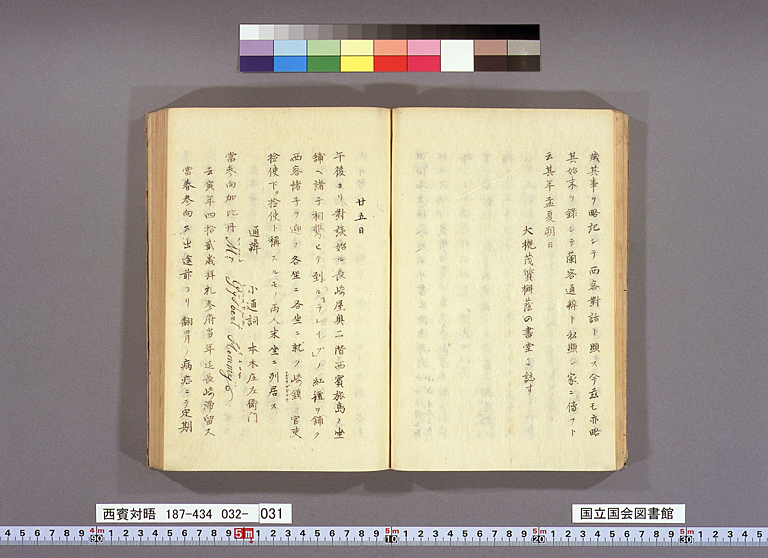 歳其事ヲ略記シテ西客對話ト題ス今茲モ亦略
其始末ヲ録シテ蘭客通辨ト私題シ家ニ傳フト
云其年孟夏朔日
大槻茂質 書堂 誌す
廿五日
午後ヨリ對談始ル長崎屋奥二階西賓旅寓ノ坐
鋪ヘ諸子相携ヒテ到ル 紅氈ヲ鋪ク
西客諸子ヲ迎フ各坐ニ各坐ニ就ク 官吏
撿使下撿使ト稱スルモノ両人末坐ニ列居ス
通辨 小通詞 本木庄左衛門
當参向加比丹 Mr Gysbert Hemmy
去寅年四拾貳歳拜礼参府当年迄長崎滞留ス
當春参向ス出途前ヨリ 病症ニテ定期
西賓対晤 187-434 032- 031
国立国会図書館